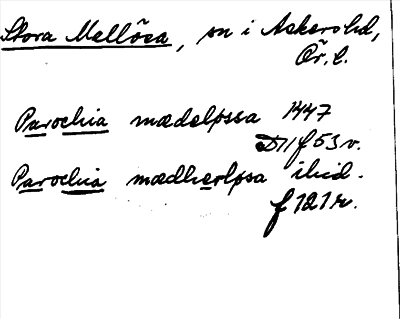 Stora Mellösa, sn i Askers hd,
Ör. l.
Parochia mædelpssa 1447
D11 f 53 v.
Parochia mædherlpsa ibid.
f 121 r.